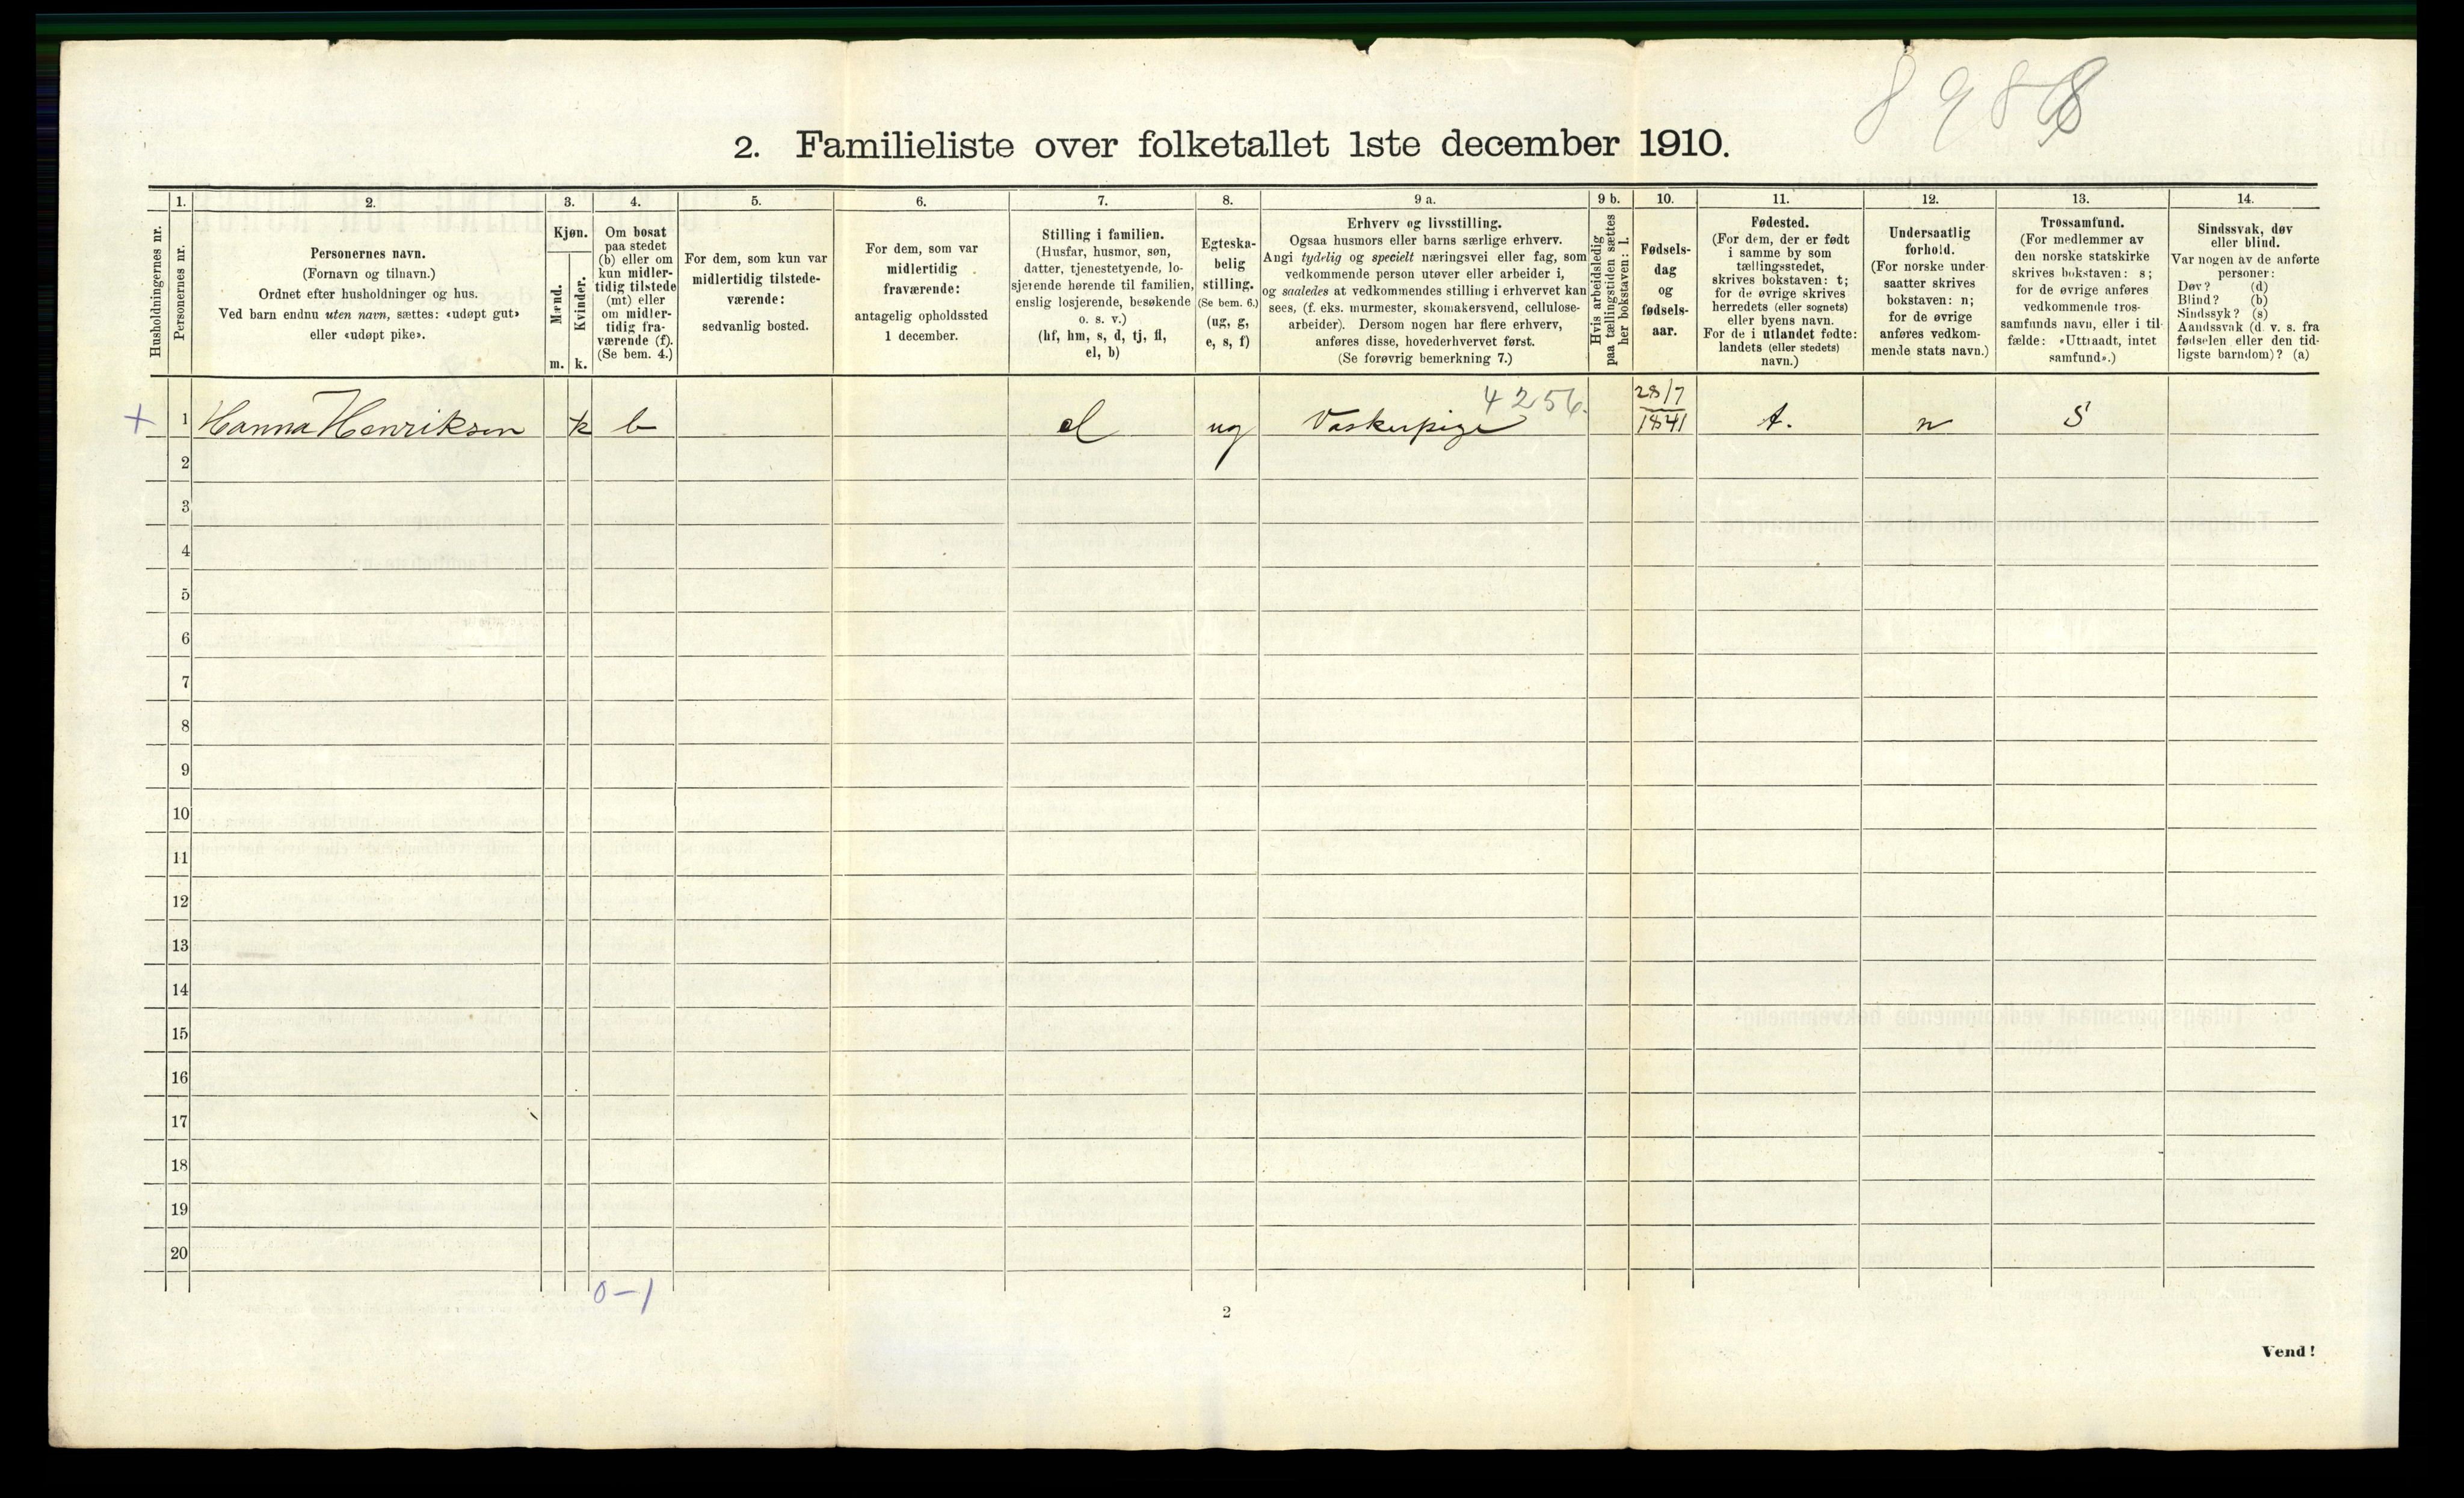 2. Familieliste over folketallet 1ste december 1910.
Husholdningernes nr.
1.
Personernes nr.
2.
Personernes navn.
(Fornavn og tilnavn.)
Ordnet efter husholdninger og hus.
Ved barn endnu uten navn, sættes: «udøpt gut»
eller «udøpt pike».
3.
Kjøn.
Mænd.
Kvinder.
m. k.
4.
Om bosat
paa stedet
(b) eller om
kun midler-
tidig tilstede
(mt) eller
om midler-
tidig fra-
værende (f).
(Se bem. 4.)
5.
For dem, som kun var
midlertidig tilstede-
værende:
sedvanlig bosted.
6.
For dem, som var
midlertidig
fraværende:
antagelig opholdssted
1 december.
7.
Stilling i familien.
(Husfar, husmor, søn,
datter, tjenestetyende, lo-
sjerende hørende til familien,
enslig losjerende, besøkende
o. s. v.)
(hf, hm, s, d, tj, fl,
el, b)
8.
Egteska-
belig
stilling.
(Se bem. 6.)
(ug, g,
e, s, f)
9 a.
Erhverv og livsstilling.
Ogsaa husmors eller barns særlige erhverv.
Angi tydelig og specielt næringsvei eller fag, som
vedkommende person utøver eller arbeider i,
og saaledes at vedkommendes stilling i erhvervet kan
sees, (f. eks. murmester, skomakersvend, cellulose-
arbeider). Dersom nogen har flere erhverv,
anføres disse, hovederhvervet først.
(Se forøvrig bemerkning 7.)
9 b.
Hvis arbeidsledig
paa tællingstiden sættes
her bokstaven: l.
10.
Fødsels-
dag
og
fødsels-
aar.
11.
Fødested.
(For dem, der er født
i samme by som
tællingsstedet,
skrives bokstaven: t;
for de øvrige skrives
herredets (eller sognets)
eller byens navn.
For de i utlandet fødte:
landets (eller stedets)
navn.)
12.
Undersaatlig
forhold.
(For norske under-
saatter skrives
bokstaven: n;
for de øvrige
anføres vedkom-
mende stats navn.)
13.
Trossamfund.
(For medlemmer av
den norske statskirke
skrives bokstaven: s;
for de øvrige anføres
vedkommende tros-
samfunds navn, eller i til-
fælde: «Uttraadt, intet
samfund».)
14.
Sindssvak, døv
eller blind.
Var nogen av de anførte
personer:
Døv? (d)
Blind? (b)
Sindssyk? (s)
Aandssvak (d. v. s. fra
fødselen eller den tid-
ligste barndom)? (a)
+ 1 Hanna Henriksen k b el ug Vaskerpige 4256. 28/7 1841 t. n S
2
3
4
5
6
7
8
9
10
11
12
13
14
15
16
17
18
19
20
0-1
2
Vend!